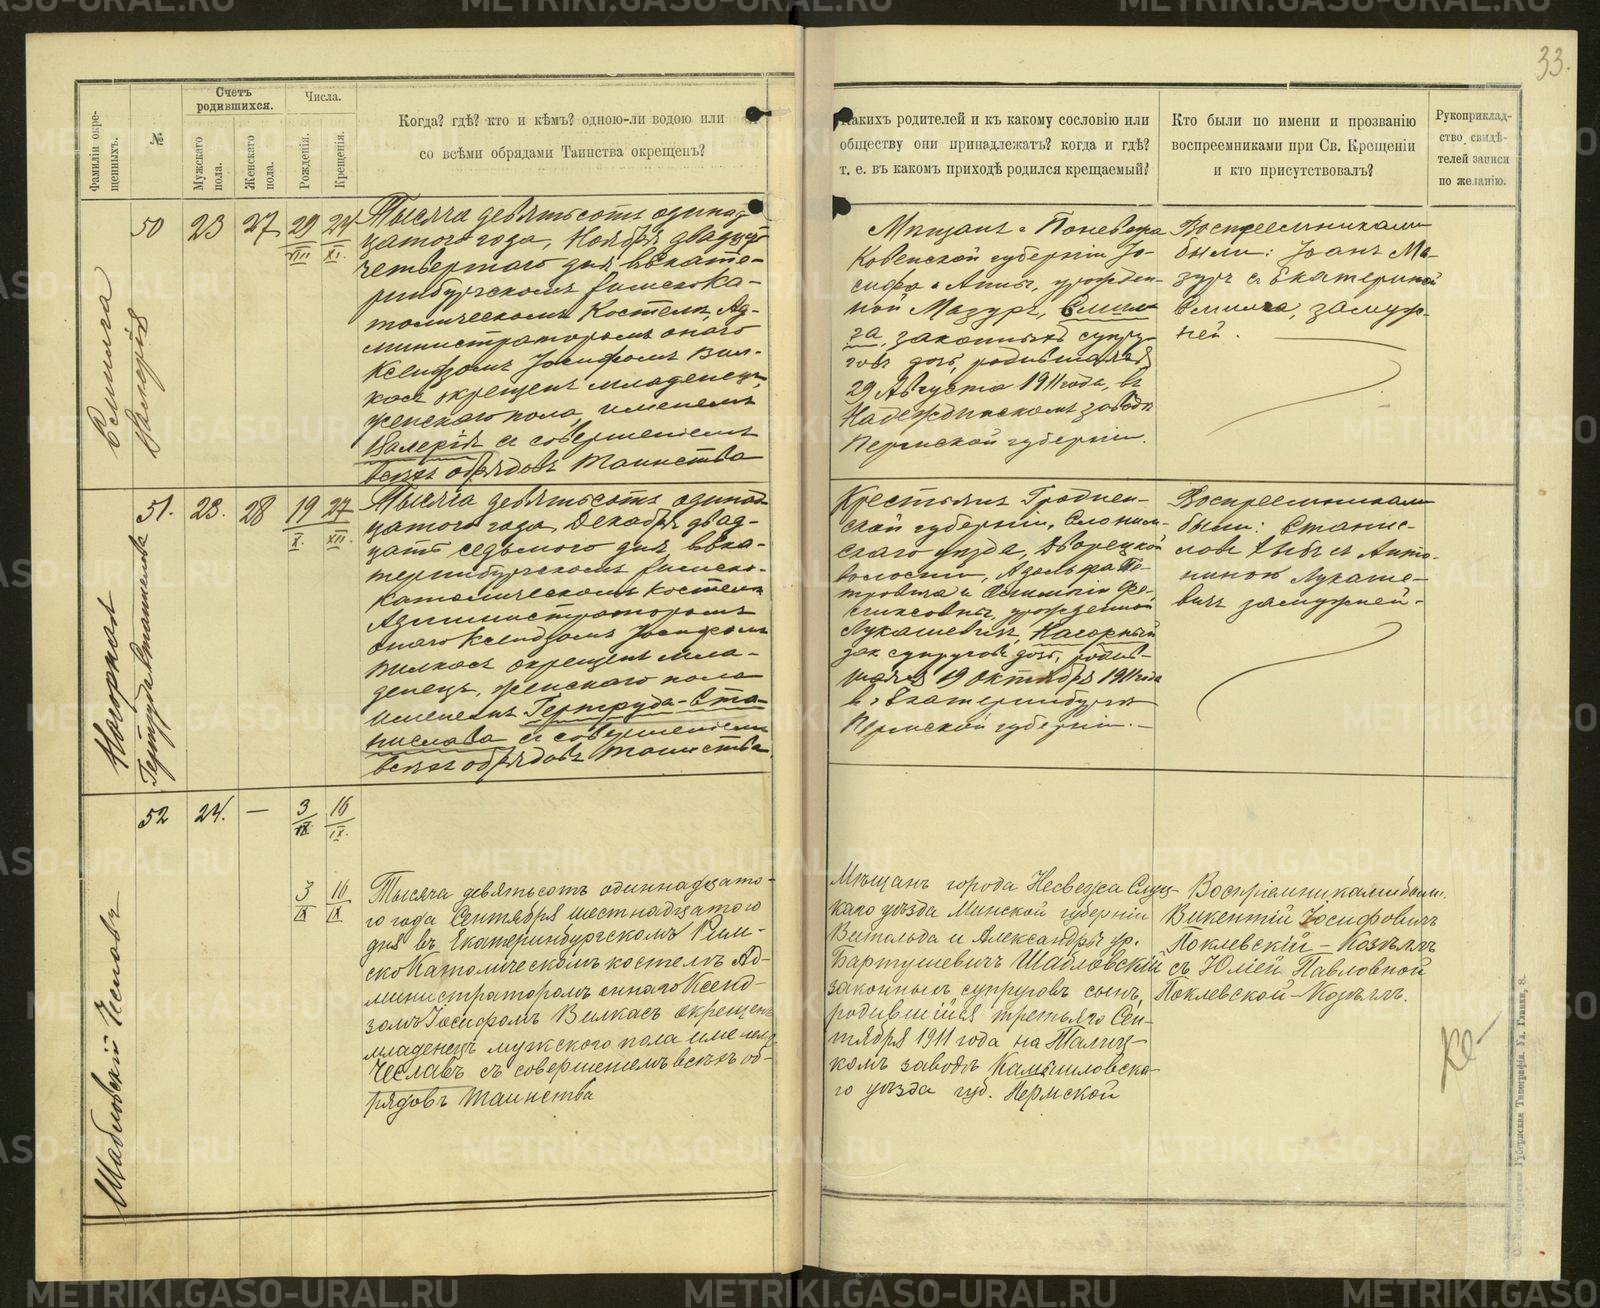 33.
Фамиліи окре-
щенныхъ.
№
Счетъ
родившихся.
Мужскаго
пола.
Женскаго
пола.
Числа.
Рожденія.
Крещенія.
Когда? гдѣ? кто и кѣмъ? одною-ли водою или
со всѣми обрядами Таинства окрещенъ?
Какихъ родителей и къ какому сословію или
обществу они принадлежатъ? когда и гдѣ?
т. е. въ какомъ приходѣ родился крещаемый?
Кто были по имени и прозванію
воспреемниками при Св. Крещеніи
и кто присутствовалъ?
Рукоприклад-
ство свидѣ-
телей записи
по желанію.
Валерія
50 23 27 29 24
VIII XI.
Тысяча девятьсотъ одинад
цатого года, Ноября двадцать
четвертаго дня, въ Екате-
ринбургскомъ Римско Ка-
толическомъ Костелѣ, Ад-
министраторомъ онаго
Ксендзомъ Іосифомъ Вил-
касъ окрещенъ младенецъ,
женскаго пола, именемъ
Валерія съ совершеніемъ
всѣхъ обрядовъ таинства
Мѣщанъ г. Поневежа
Ковенской губерніи Іо-
сифа и Анны, урожден-
ной Мазуръ,
законныхъ супру-
говъ дочь, родившаяся
29 Августа 1911 года, въ
Надеждинскомъ заводѣ
Пермской губерніи.
Воспреемниками
были: Іоанъ Ма-
зуръ съ Екатериной
замуж-
ней.
Нагорная
Гертруда-Станислава
51. 23. 28 19 27
X. XII.
Тысяча девятьсотъ одинад
цатого года, Декабря двад-
цать седьмого дня, въ Ека-
теринбургскомъ Римско-
Католическомъ Костелѣ
Администраторомъ
онаго Ксендзомъ Іосифомъ
Вилкасъ окрещенъ мла-
денецъ, женскаго пола
именемъ Гертруда-Ста-
нислава съ совершеніемъ
всѣхъ обрядовъ таинства
Крестьянъ Гроднен-
ской губерніи, Слоним-
скаго уѣзда, Дворецкой
волости, Адольфа Пе-
тровича и
урожденной
Лукашевичъ, Нагорныхъ
зак супруговъ дочь, родив-
шаяся 19 октября 1911 года
въ г. Екатеринбургѣ
Пермской губерніи.-
Воспреемниками
были: Станис-
лавъ съ Анто-
ниною Лукаше-
вичъ замужней.
Шабловскій Чеславъ
52 24. — 3 16
IX IX.
3 16
IX IX
Тысяча девятьсотъ одиннадцато-
го года Сентября шестнадцатого
дня въ Екатеринбургскомъ Рим-
ско Католическомъ костелѣ Ад-
министраторомъ оннаго Ксенд-
зомъ Іосифомъ Вилкасъ окрещенъ
младенецъ мужского пола именемъ
Чеславъ съ совершеніемъ всѣхъ об-
рядовъ таинства
Мѣщанъ города Несвежа Слуц-
каго уѣзда Минской губерніи
Витольда и Александры ур.
Бартушевичъ Шабловскій
законныхъ супруговъ сынъ,
родившійся третьяго Сен-
тября 1911 года на Талиц-
комъ заводѣ Камышловска-
го уѣзда губ. Пермской
Воспріемниками были:
Викентій Іосифовичъ
Поклевскій-Козѣллъ
съ Юліей Павловной
Поклевской-Козѣллъ.